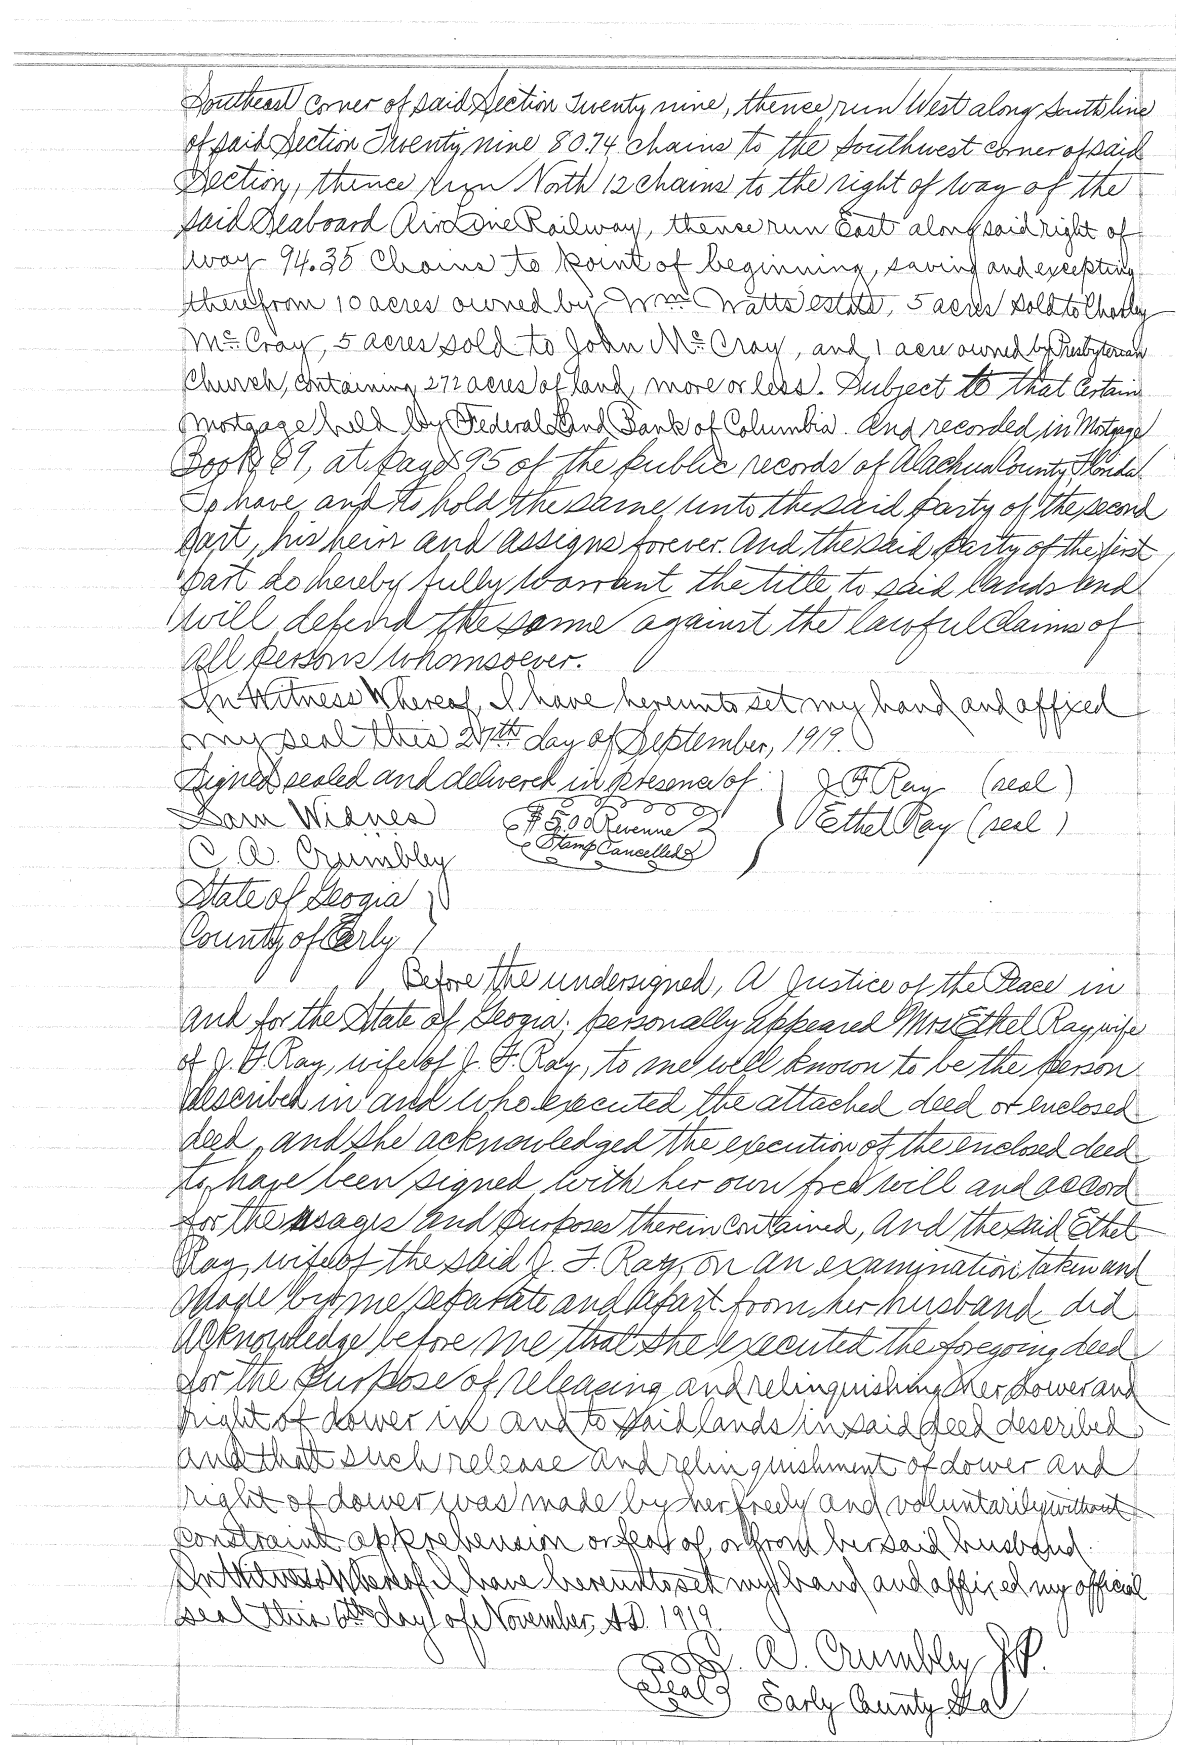 Southeast corner of said Section Twenty nine, thence run West along South line
of said Section Twenty nine 80.74 chains to the Southwest corner of said
Section, thence run North 12 chains to the right of way of the
said Seaboard Air Line Railway, thense run East along said right of
way 94.35 Chains to point of beginning, saving and excepting
therefrom 10 acres owned by Wm Watts estate, 5 acres sold to Charley
McCray, 5 acres sold to John McCray, and 1 acre owned by Presbyterian
Church, containing 272 acres of land, more or less. Subject to that certain
mortgage held by Federal Land Bank of Columbia. and recorded in Mortgage
Book 89, at page 95 of the public records of Alachua County, Florida.
To have and to hold the same unto the said party of the second
part, his heirs and assigns forever. And the said party of the first
part do hereby fully warrant the title to said lands and
will defend the same against the lawful Claims of
all persons whomsoever.
In Witness Whereof, I have hereunto set my hand and affixed
my seal this 27th day of September, 1919.
Signed sealed and delivered in presence of: J F Ray (seal)
Sam Widnes $5.00 Revenue Ethel Ray (seal)
C. A. Crumbley Stamp Cancelled
State of Geogia
County of Early
Before the undersigned, A Justice of the Peace in
and for the State of Geogia; personally appeared Mrs Ethel Ray, wife
of J. F. Ray, wife of J. F. Ray, to me well known to be the person
described in and who executed the attached deed or enclosed
deed, and she acknowledged the execution of the enclosed deed
to have been signed with her own free will and accord
for the usages and purposes therein contained, and the said Ethel
Ray, wife of the said J. F. Ray, on an examination taken and
made by me separate and apart from her husband did
acknowledge before me that she executed the foregoing deed
for the purpose of releasing and relinquishing her dower and
right of dower in and to said lands in said deed described
and that such release and relinquishment of dower and
right of dower was made by her freely and voluntarily without
constraint apprehension or fear of, or from her said husband.
In Witness Whereof I have hereunto set my hand and affixed my official
seal this 6th day of November, A.D. 1919.
C. A. Crumbley J.P.
Seal Early County Ga